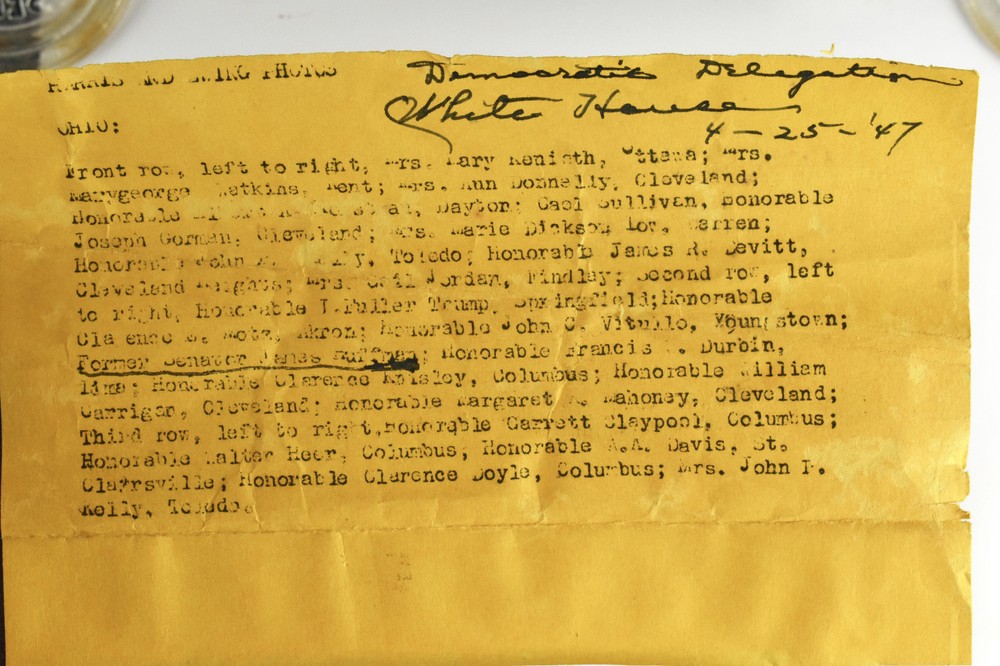 HARRIS AND EWING PHOTOS
Democratic Delegation
White House
4-25-'47
OHIO:
Front row, left to right, Mrs. Mary Kenirth, Ottawa; Mrs.
Marygeorge Watkins, Kent; Mrs. Ann Donnelly, Cleveland;
Honorable Dayton; Gael Sullivan, Honorable
Joseph Gorman, Cleveland; Mrs. Marie Dickson Low, Warren;
Honorable John Toledo; Honorable James R. Devitt,
Cleveland Heights; Mrs. Jordan, Findley; Second row, left
to right, Honorable I.Fuller Trump, Springfield;Honorable
Clarence Motz, Akron; Honorable John C. Vitullo, Youngstown;
Former Senator James Huffman; Honorable Francis W. Durbin,
Lima; Honorable Clarence Knisley, Columbus; Honorable William
Carrigan, Cleveland; Honorable Margaret A. Mahoney, Cleveland;
Third row, left to right,Honorable Garrett Claypool, Columbus;
Honorable Walter Heer, Columbus, Honorable A.A. Davis, St.
Clairsville; Honorable Clarence Doyle, Columbus; Mrs. John P.
Kelly, Toledo.